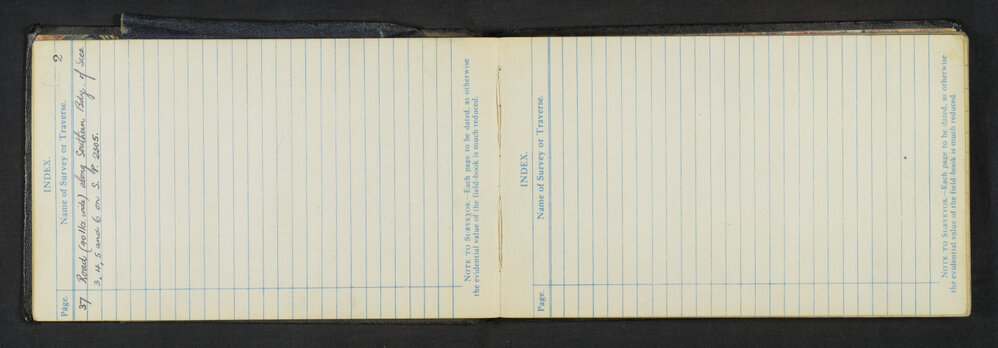 2
INDEX.
Page. Name of Survey or Traverse.
37 Road (90 lks wide) along Southern Bdy. of Secs
3, 4, 5 and 6 on S. P. 2305.
NOTE TO SURVEYOR.—Each page to be dated, as otherwise
the evidential value of the field-book is much reduced.
INDEX.
Page. Name of Survey or Traverse.
NOTE TO SURVEYOR.—Each page to be dated, as otherwise
the evidential value of the field-book is much reduced.